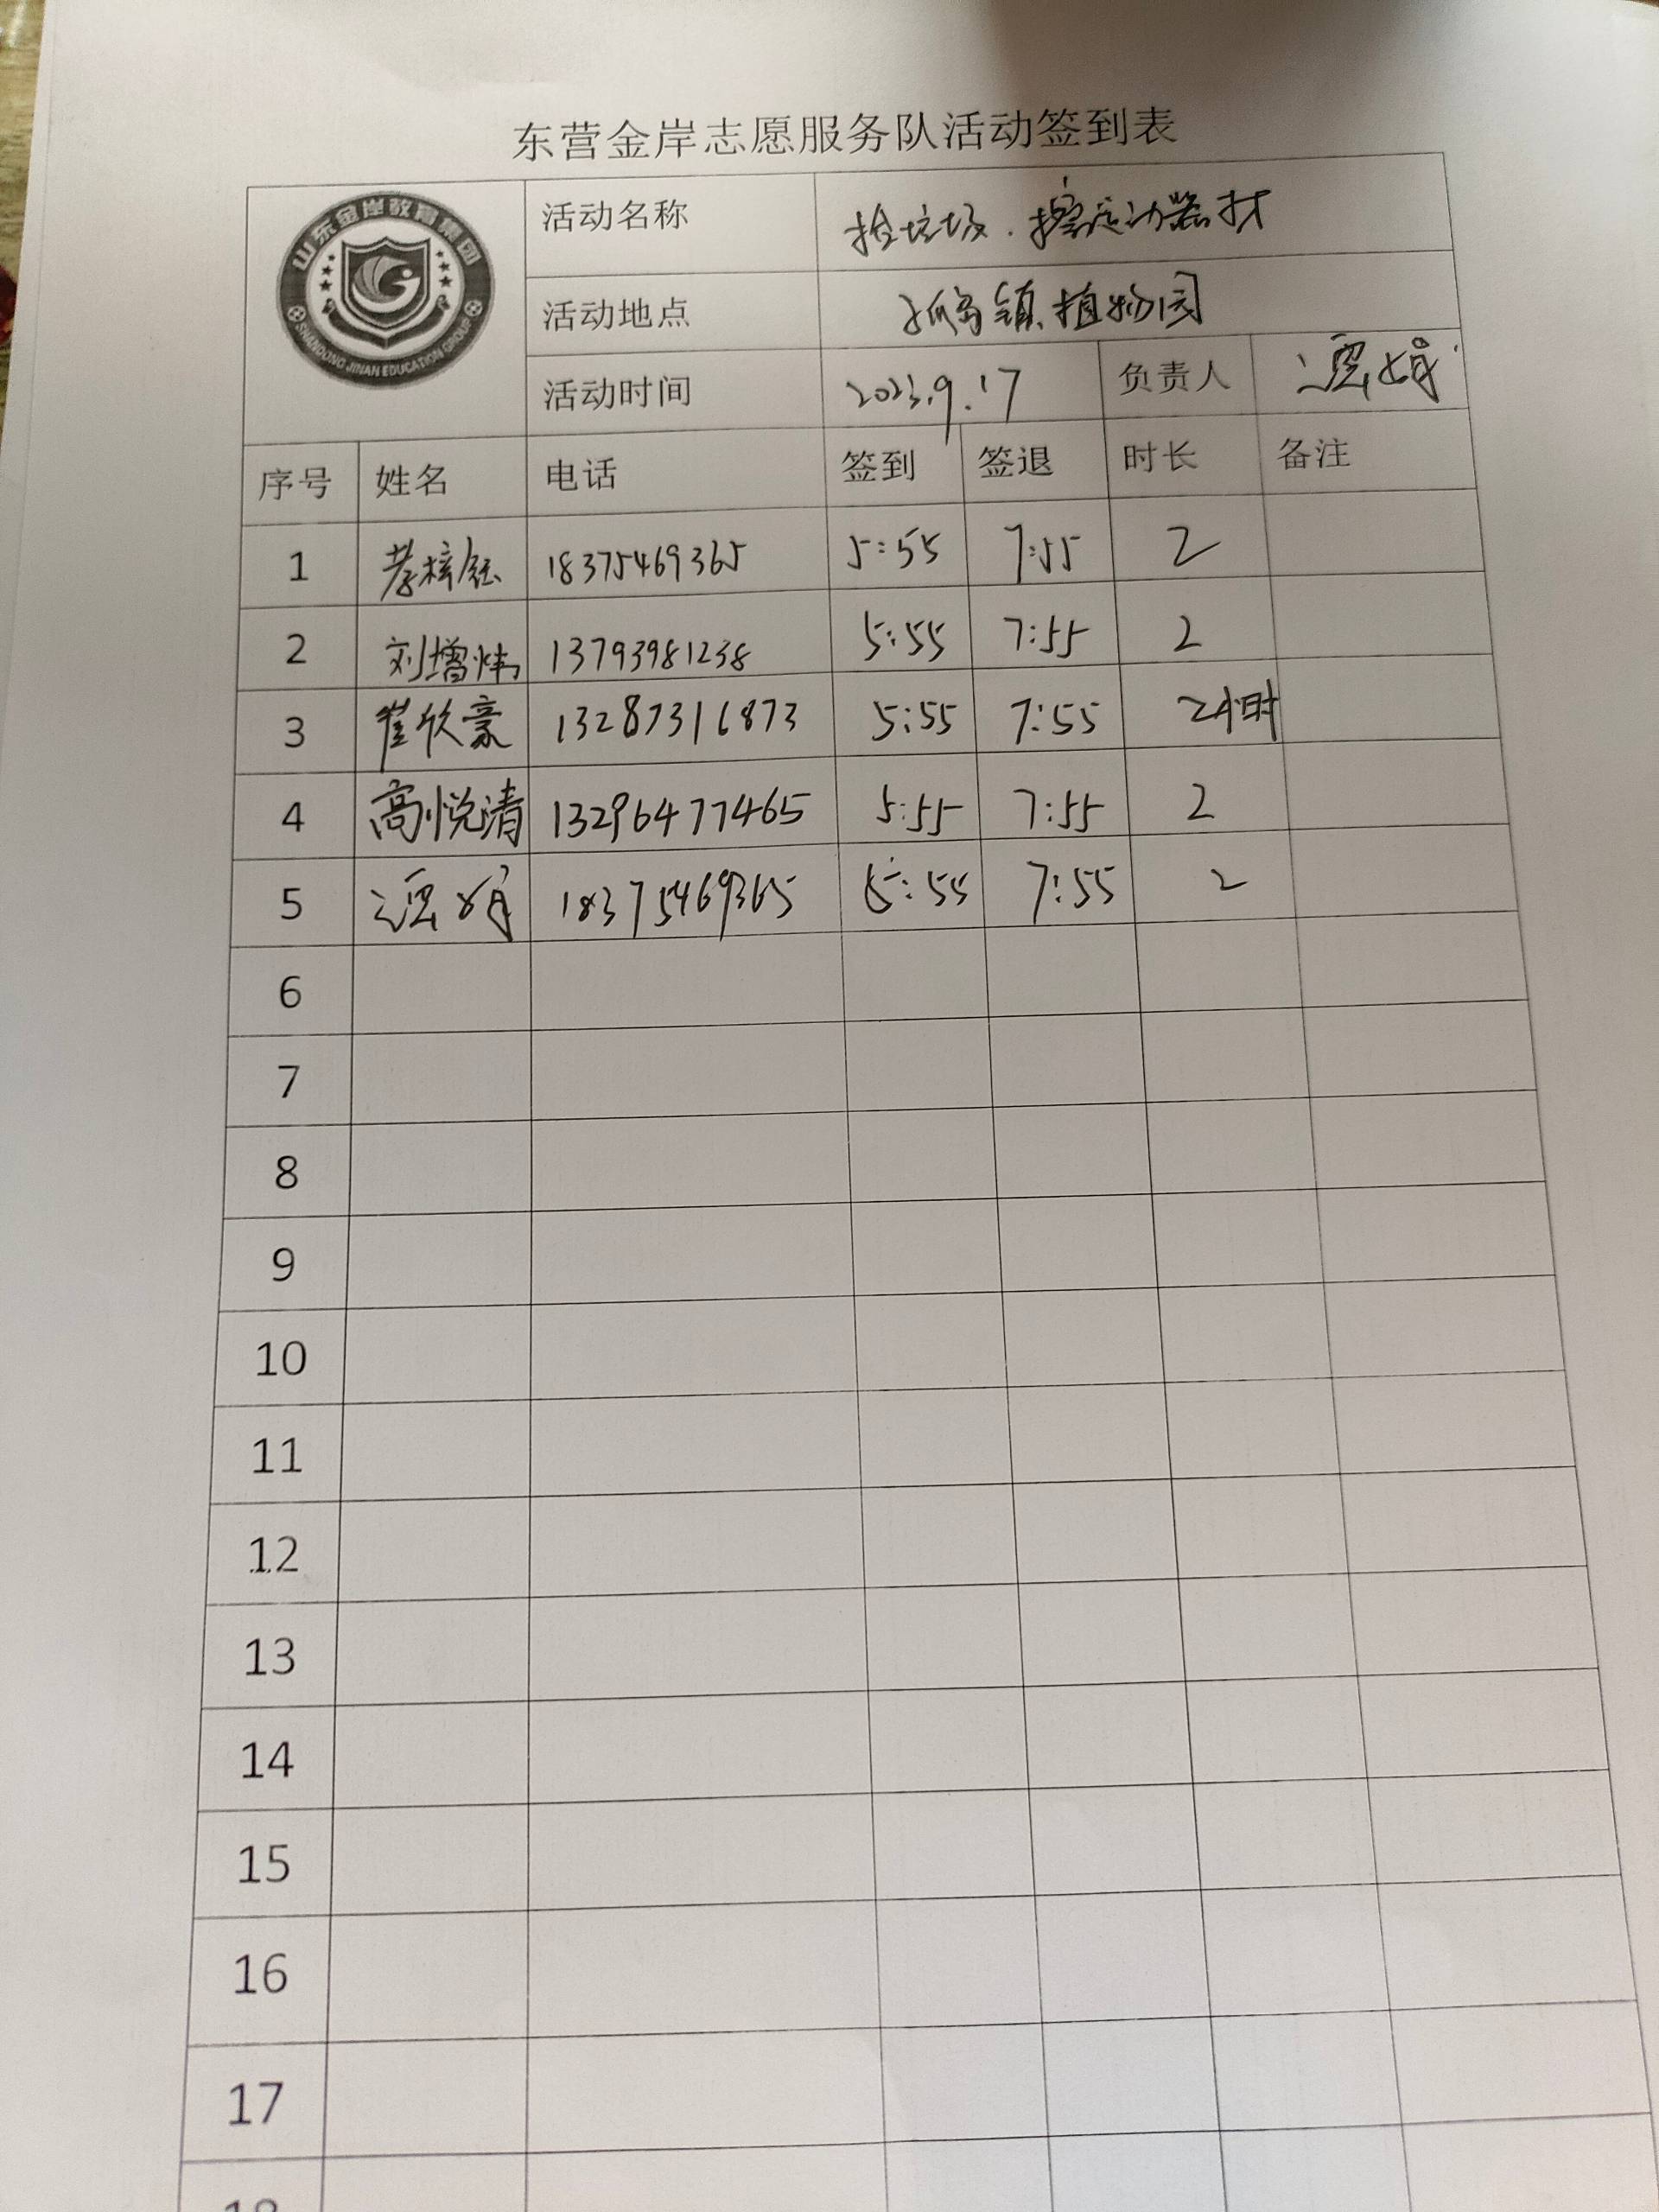 东营金岸志愿服务队活动签到表
山东金岸教育集团
SHANDONG JINAN EDUCATION GROUP
活动名称 捡垃圾.擦运动器材
活动地点 孤岛镇植物园
活动时间 2023.9.17 负责人 娟
序号 姓名 电话 签到 签退 时长 备注
1 梓钰 18375469365 5:55 7:55 2
2 刘增炜 13793981238 5:55 7:55 2
3 崔欣豪 13287316873 5:55 7:55 2小时
4 高悦清 13296477465 5:55 7:55 2
5 娟 18375469365 5:55 7:55 2
6
7
8
9
10
11
12
13
14
15
16
17
18